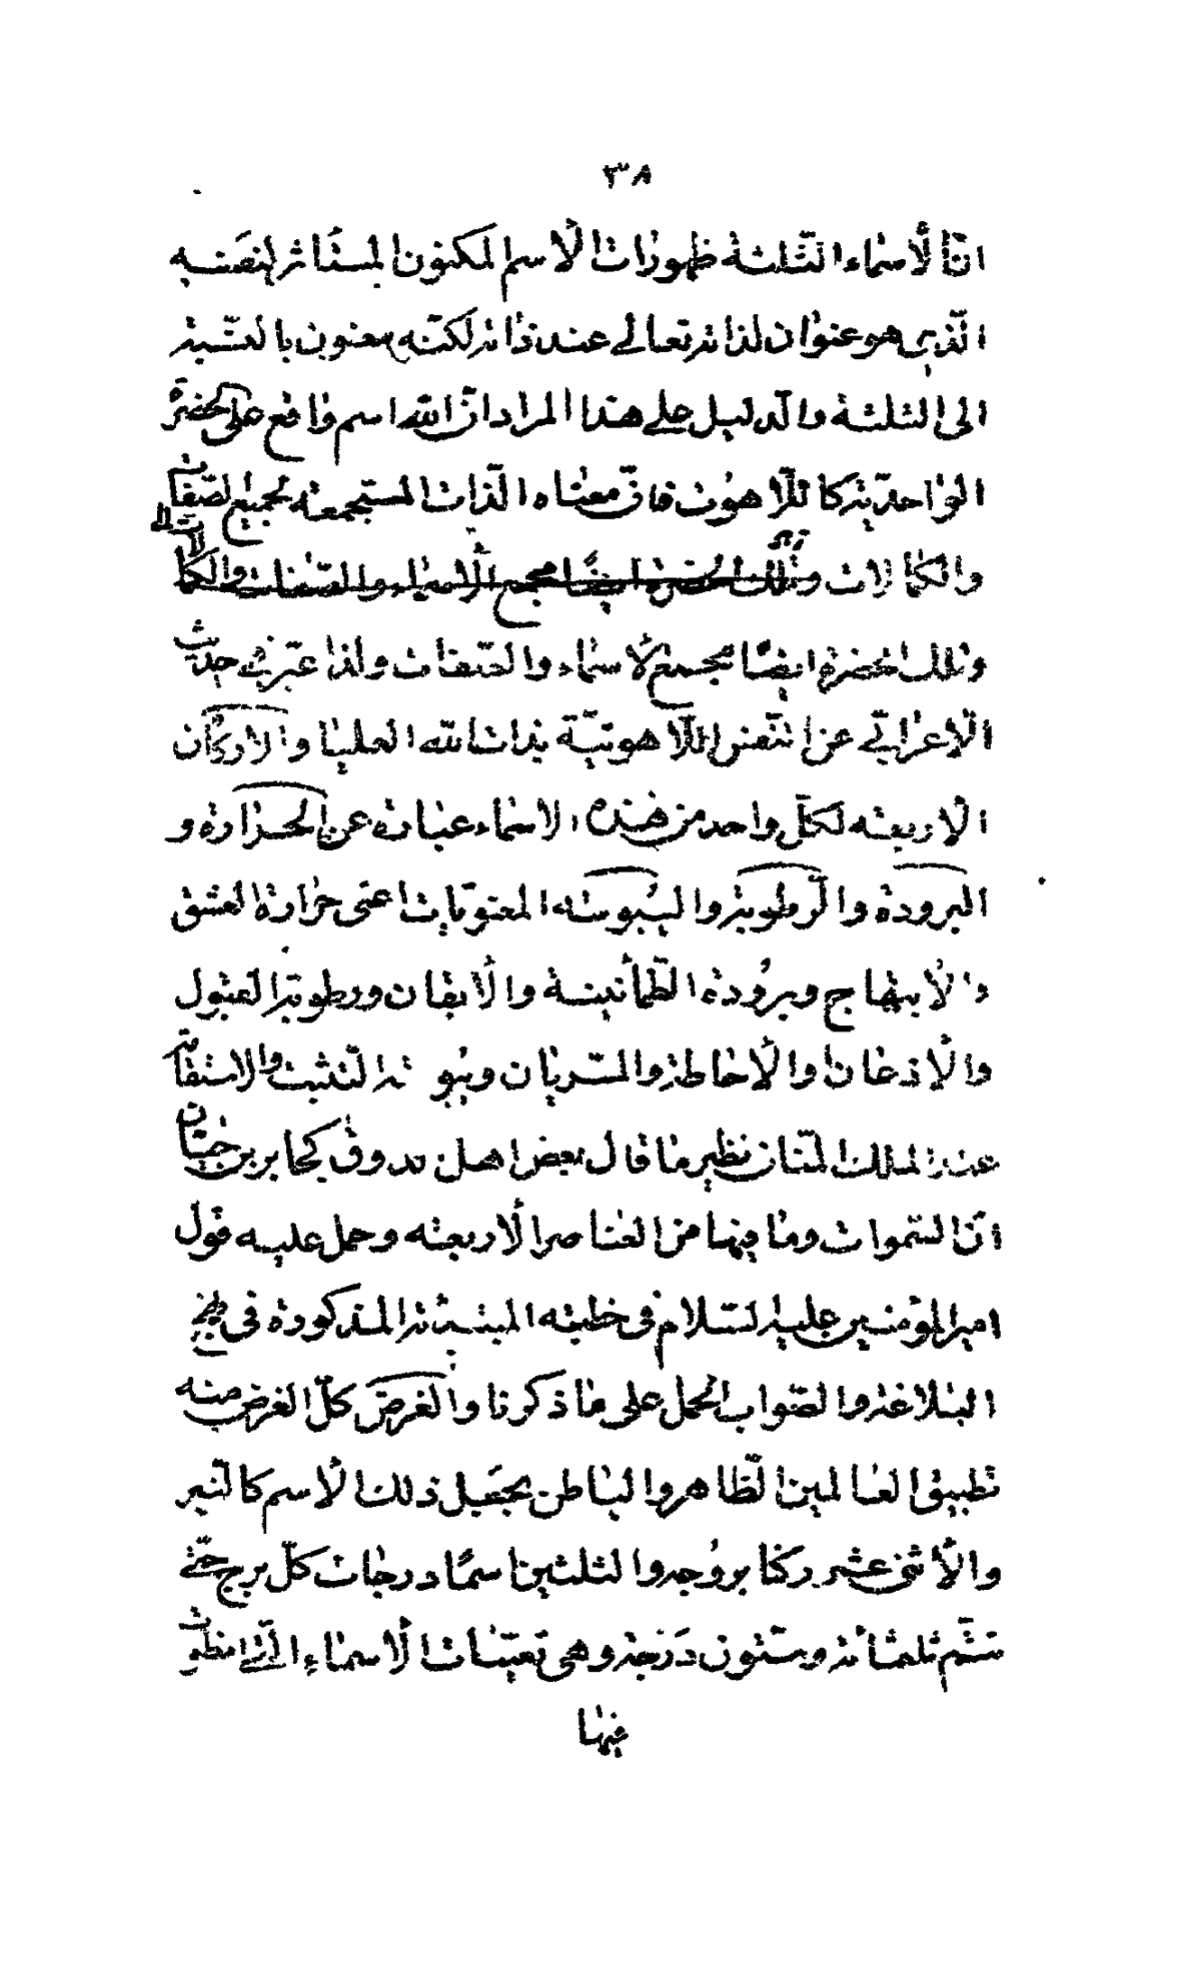 ٣٨
انّ الأسماء الثّلثة ظهورات الأسم المكنون المستأثر لنفسه
الّذى هو عنوان لذاته تعالى عند ذاته لكنّه معنون بالنّسبة
الى الثلثة والدليل على هذا المراد انّ اللّه اسم واقع على الحضرة
الواحديّة كاللّاهوت فانّ معناه الذّات المستجمعة لجميع الصّفات
والكمالات وتلك الحضرة ايضًا مجمع الأسماء والصّفات والكمالات
وتلك الحضرة ايضًا مجمع الأسماء والصّفات ولذا عبّر فى حديث
الأعرابى عن النّفس اللّاهوتيّة بذات اللّه العليا والاركان
الأربعة لكلّ واحد من هذه الاسماء عبارة عن الحرارة و
البرودة والرّطوبة واليُبوسة المعنويات اعنى حرارة العشق
والأبتهاج وبرُودة الطّمأنينة والأيقان ورطوبة القبول
والأذعان والأحاطة والسّريان ويُبو ة التّثبت والاستقامة
عند الملك المنّان نظير ما قال بعض اهل الذوق كجابر بن حيّان
انّ السّموات وما فيها من العناصر الأربعة وحمل عليه قول
امير المؤمنين عليه السّلام فى خطبته المذكورة فى نهج
البلاغة والصّواب الحمل على ما ذكرنا والغرض كلّ الغرض منه
تطبيق العالمين الظّاهر والباطن بجعل ذلك الأسم كالنّير
والأثنى عشر ركنا بروُجه والثلثين اسمًا درجات كلّ برج حتّى
تتمّ ثلثمائة وستّون دَرجة وهى تعيّنات الأسماء الّتى
فيها